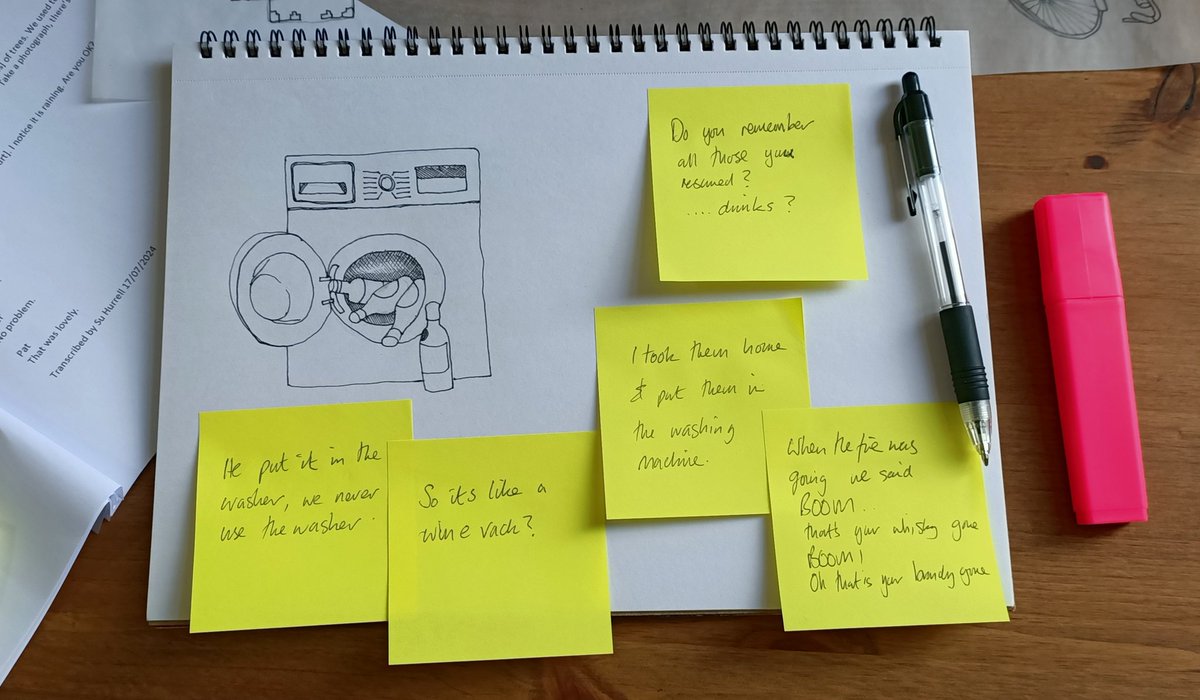 of trees. We used t
Take a photograph, there's
ort]. I notice it is raining. Are you OK?
No problem.
Pat
That was lovely.
Transcribed by Su Hurrell 17/07/2024
Do you remember
all those you
rescued?
.... drinks?
I took them home
& put them in
the washing
machine.
He put it in the
washer, we never
use the washer.
So it's like a
wine rack?
When the fire was
going we said
BOOM..
that's your whisky gone
BOOM!
Oh that is your brandy gone